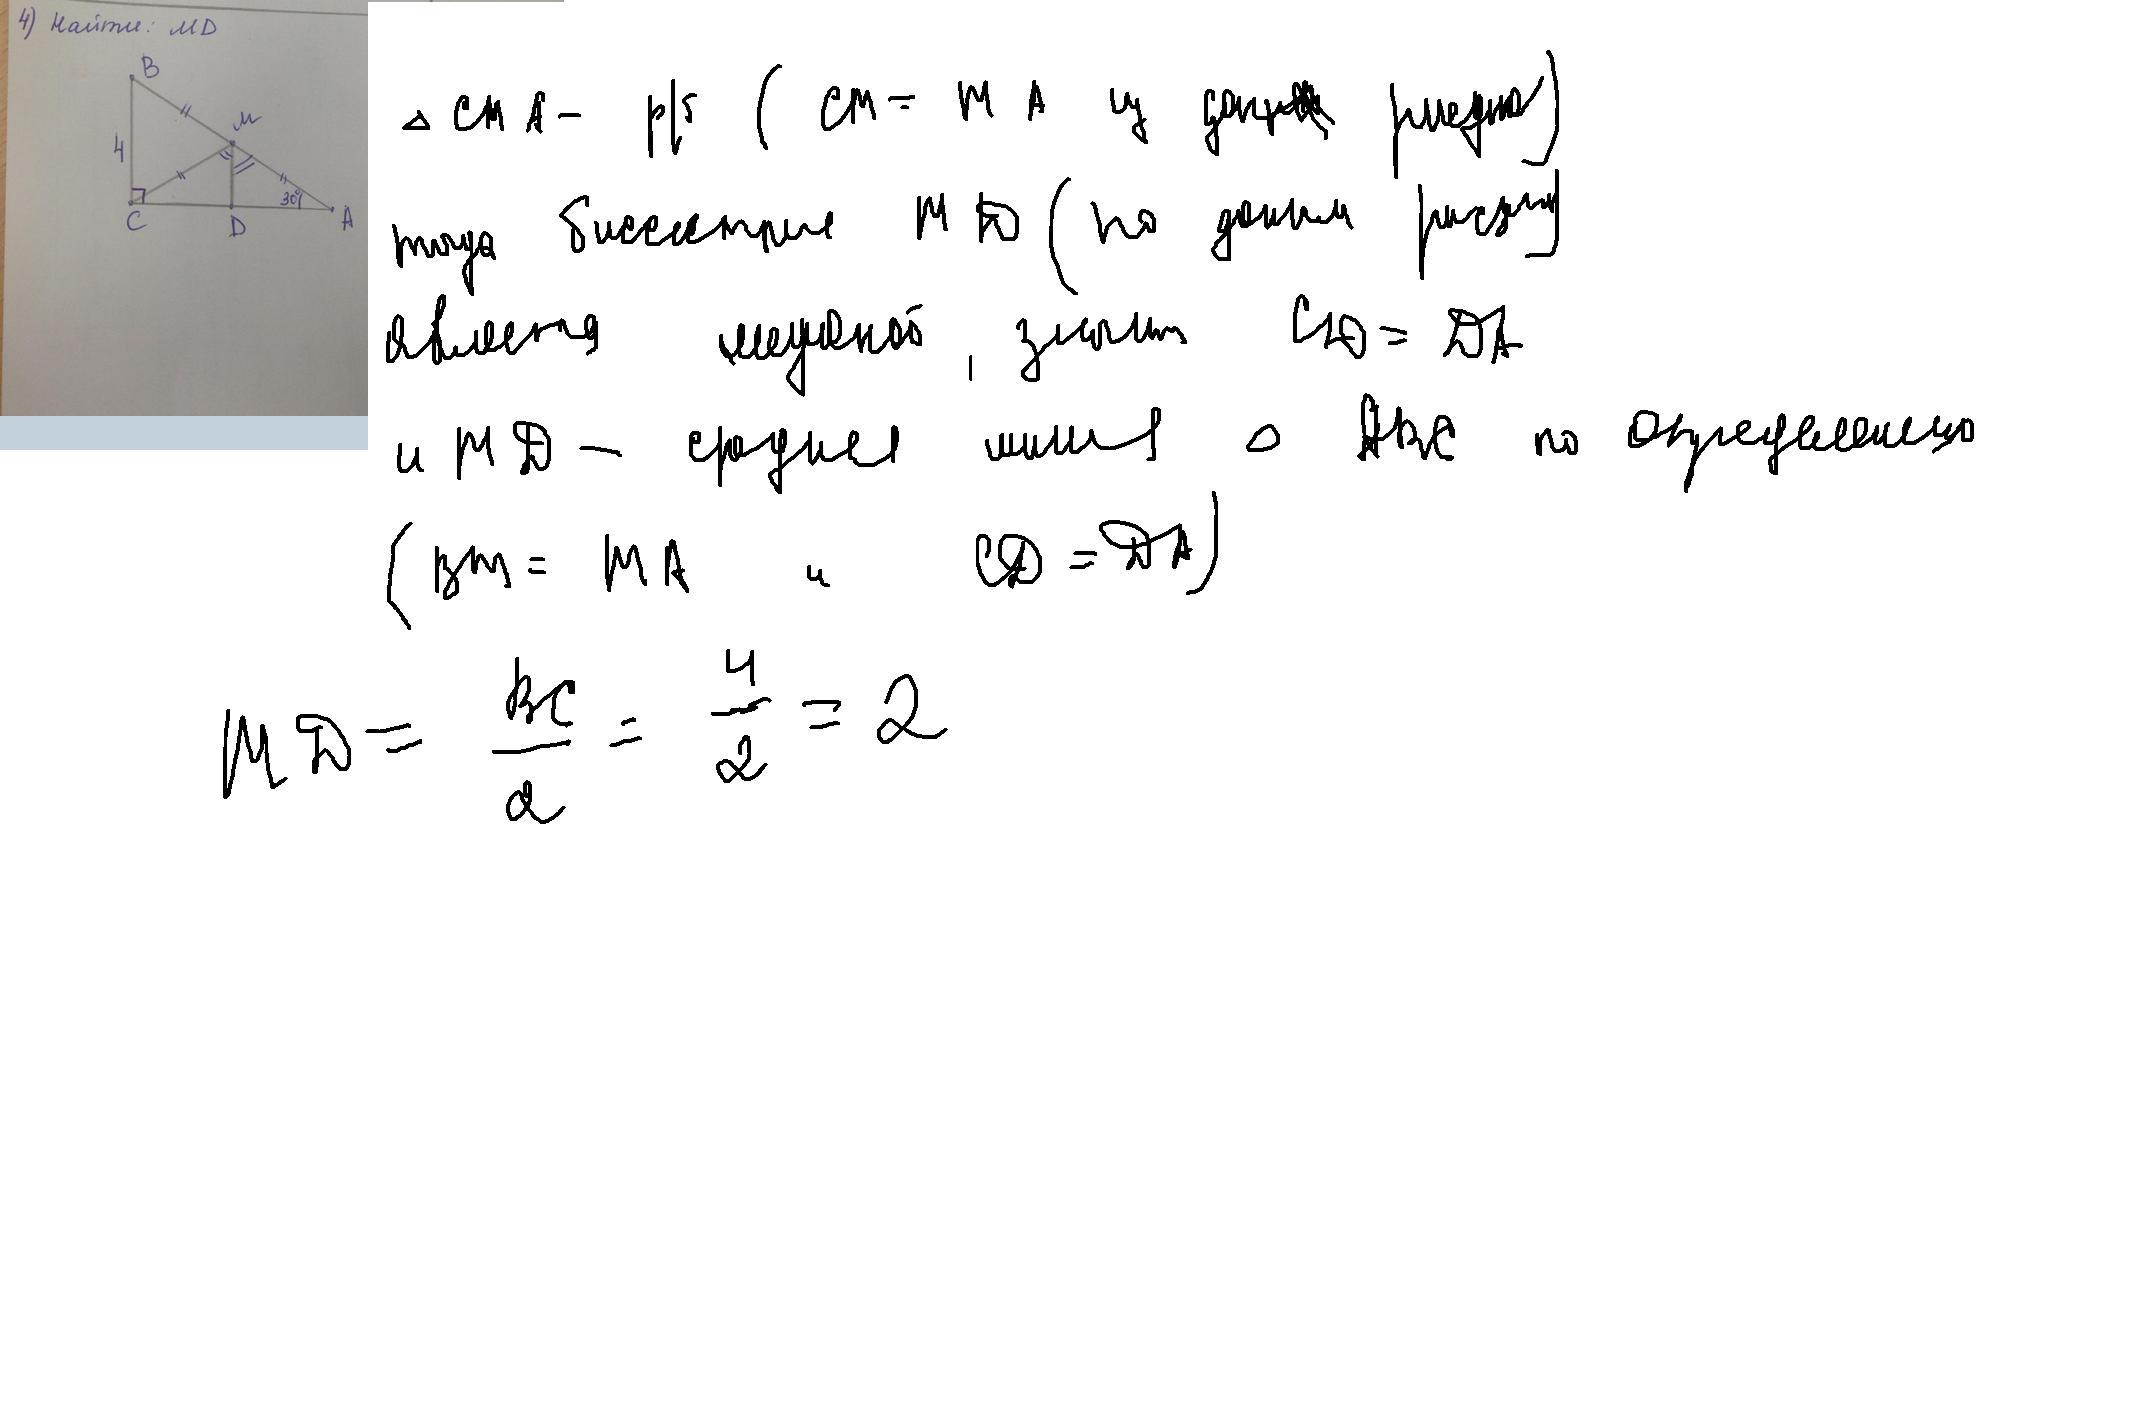 4) Найти: MD
B
M
4
30°
C
D
A
△ CMA - р/б ( CM = MA из данных рисунка)
тогда биссектриса MD (по данным рисунка)
является медианой, значит CD = DA
и MD — средняя линия △ ABC по определению
(BM = MA и CD = DA)
MD = BC/2 = 4/2 = 2